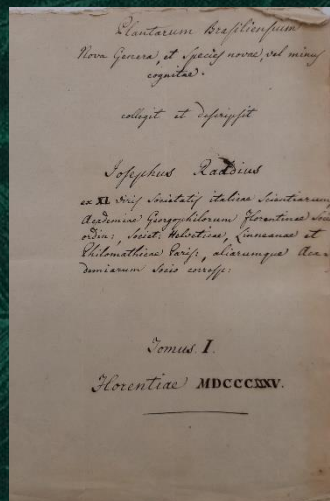 Plantarum Brasiliensium
Nova Genera, et Species novae, vel minus
cognitae.
collegit et descripsit
Josephus Raddius
ex XL viris Societatis italicae Scientiarum,
Academiae Georgophilorum Florentinae Socio
ordin:, Societ: Helveticae, Linneanae et
Philomathicae Paris:, aliarumque Aca-
demiarum Socio corresp:
Tomus I.
Florentiae MDCCCXXV.